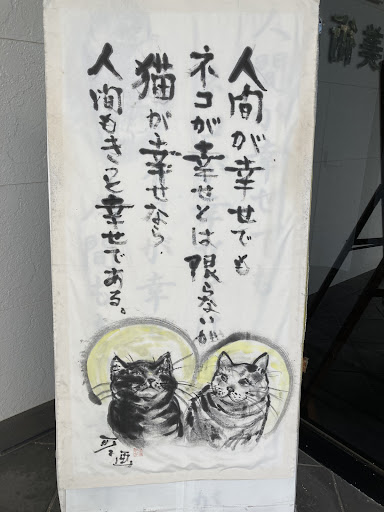 人間が幸せでも
ネコが幸せとは限らないが
猫が幸せなら.
人間もきっと幸せである。